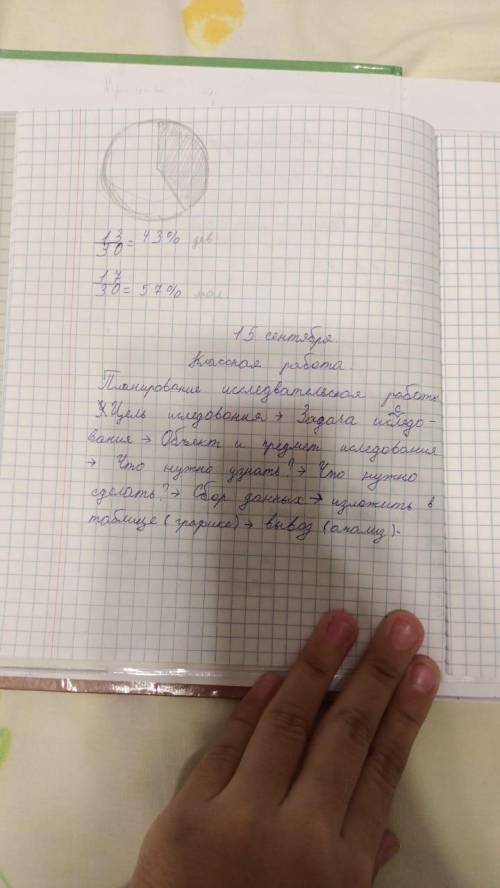 13/30 = 43% дев.
17/30 = 57% мал.
15 сентября.
Классная работа.
Планирование исследвательская работы
Цель иследования → Задача иследо-
вания → Объект и предмет иследования
→ Что нужно узнать? → Что нужно
сделать? → Сбор данных → изложить в
таблице (графике) → вывоз (анализ).